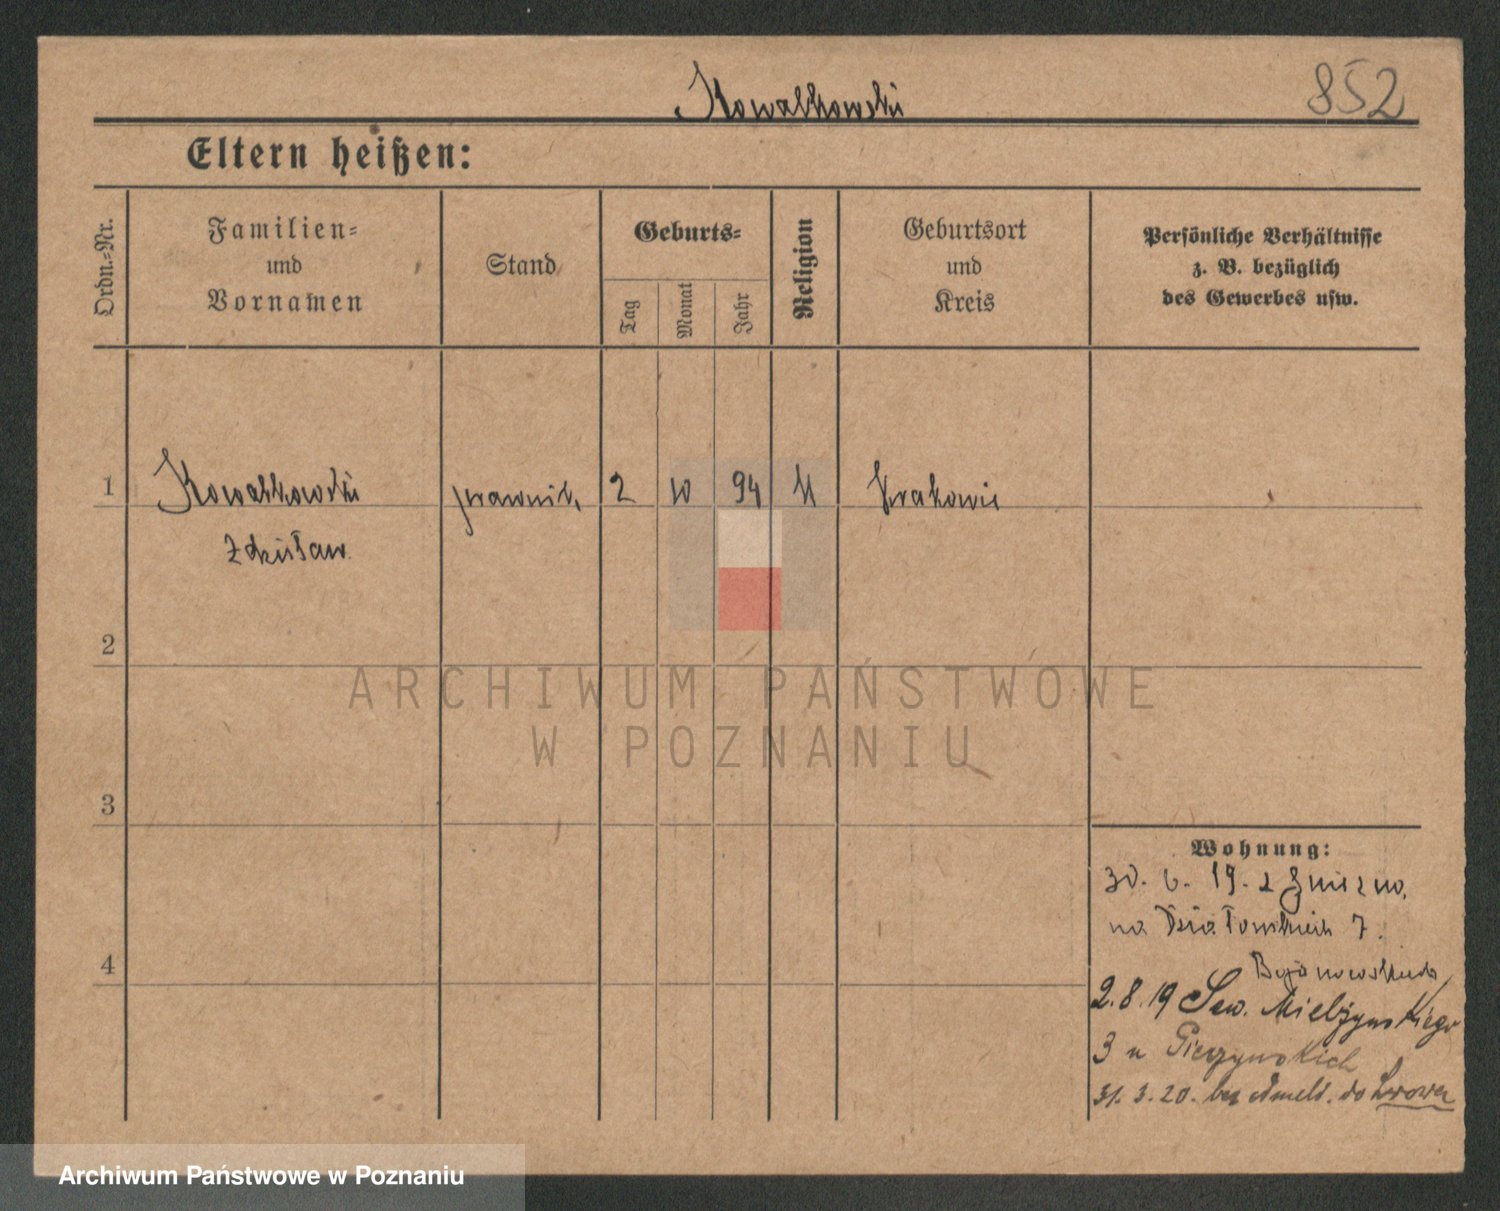 Kowalkowski
852
Eltern heißen:
Ordn.-Nr.
Familien-
und
Vornamen
Stand
Geburts-
Tag
Monat
Jahr
Religion
Geburtsort
und
Kreis
Persönliche Verhältnisse
z. B. bezüglich
des Gewerbes usw.
1 Kowalkowski prawnik 2 10 94
Zdzisław
2
ARCHIWUM PAŃSTWOWE
W POZNANIU
3
4
Wohnung:
30. 6. 19. z Gniezno,
na Działowskich 7.
2.8.19 Sew. Mielżyńskiego
3 u
31. 3. 20. do Lwowa
Archiwum Państwowe w Poznaniu